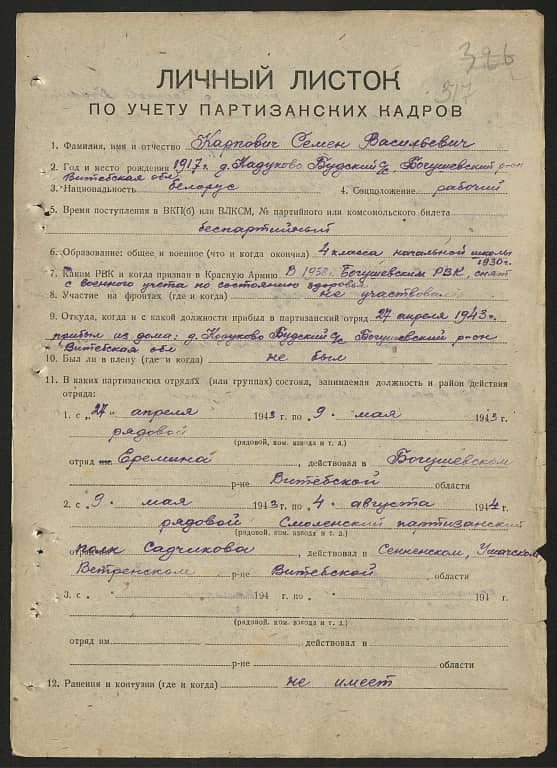 326
317
ЛИЧНЫЙ ЛИСТОК
ПО УЧЕТУ ПАРТИЗАНСКИХ КАДРОВ
1. Фамилия, имя и отчество Карпович Семен Васильевич
2. Год и место рождения 1917 г. д. Кадуково Будский с/с Богушевский р-он
Витебская обл
3. Национальность белорус 4. Соцположение рабочий
5. Время поступления в ВКП(б) или ВЛКСМ, № партийного или комсомольского билета
беспартийный
6. Образование: общее и военное (что и когда окончил) 4 класса начальной школы
1930 г.
7. Каким РВК и когда призван в Красную Армию В 1938 Богушевским РВК, снят
с военного учета по состоянию здоровья
8. Участие на фронтах (где и когда) не участвовал
9. Откуда, когда и с какой должности прибыл в партизанский отряд 27 апреля 1943 г.
прибыл из дома: д. Кадуково Будский с/с Богушевский р-он
Витебская обл
10. Был ли в плену (где и когда) не был
11. В каких партизанских отрядах (или группах) состоял, занимаемая должность и район действия
отряда:
1. с „27" апреля 1943 г. по 9. мая 1943 г.
рядовой
(рядовой, ком. взвода и т. д.)
отряд им. Еремина, действовал в Богушевском
р-не Витебской области
2. с 9. мая 1943 г. по 4. августа 1944 г.
рядовой Смоленский партизанский
(рядовой, ком. взвода и т. д.)
полк Садчикова, действовал в Сенненском, Ушачском,
Ветренском р-не Витебской области
3. с 194 г. по 194 г.
(рядовой, ком. взвода и т. д.)
отряд им. действовал в
р-не области
12. Ранения и контузии (где и когда) не имеет